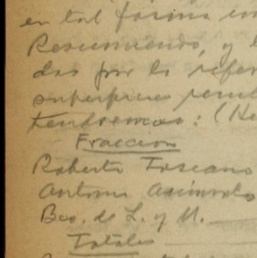 en tal forma en
Resumiendo, y
das por la refor
superficies resul
tendremos: (He
Fraccion
Roberto Toscano
Antonio
Bco. de L. y M.
Totales